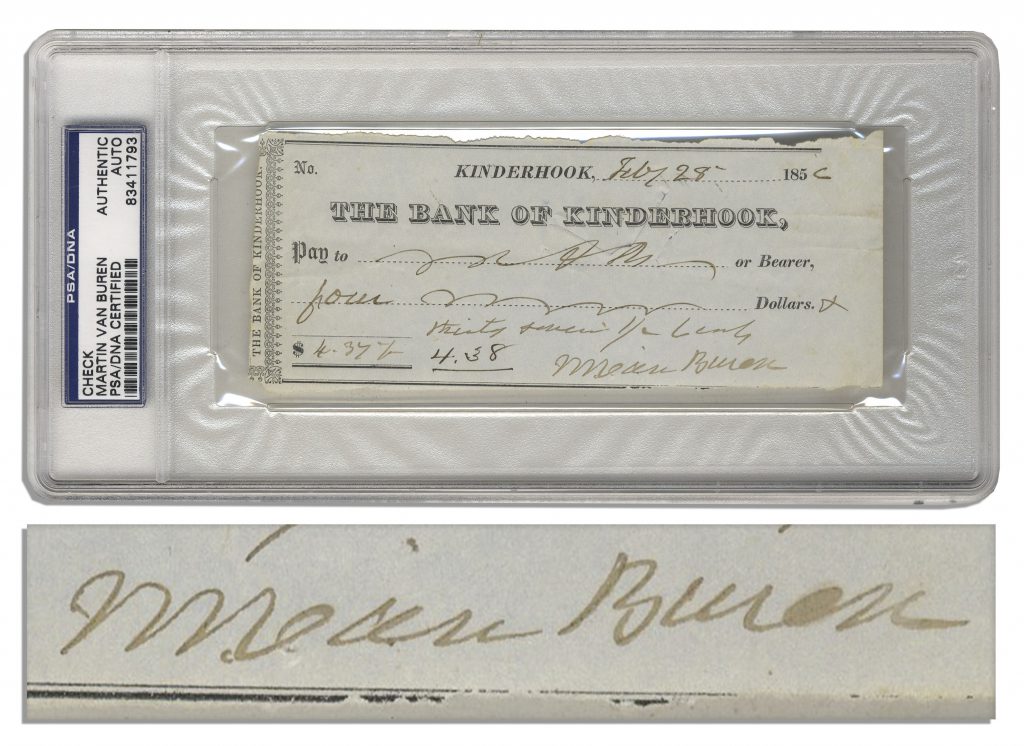 PSA/DNA
CHECK AUTHENTIC
MARTIN VAN BUREN AUTO
PSA/DNA CERTIFIED 83411793
THE BANK OF KINDERHOOK.
No. KINDERHOOK, Feby 28 185
THE BANK OF KINDERHOOK,
Pay to or Bearer,
four Dollars.
thirty seven 1/2 Cents
$ 4.37½ 4.38
M Van Buren
M Van Buren